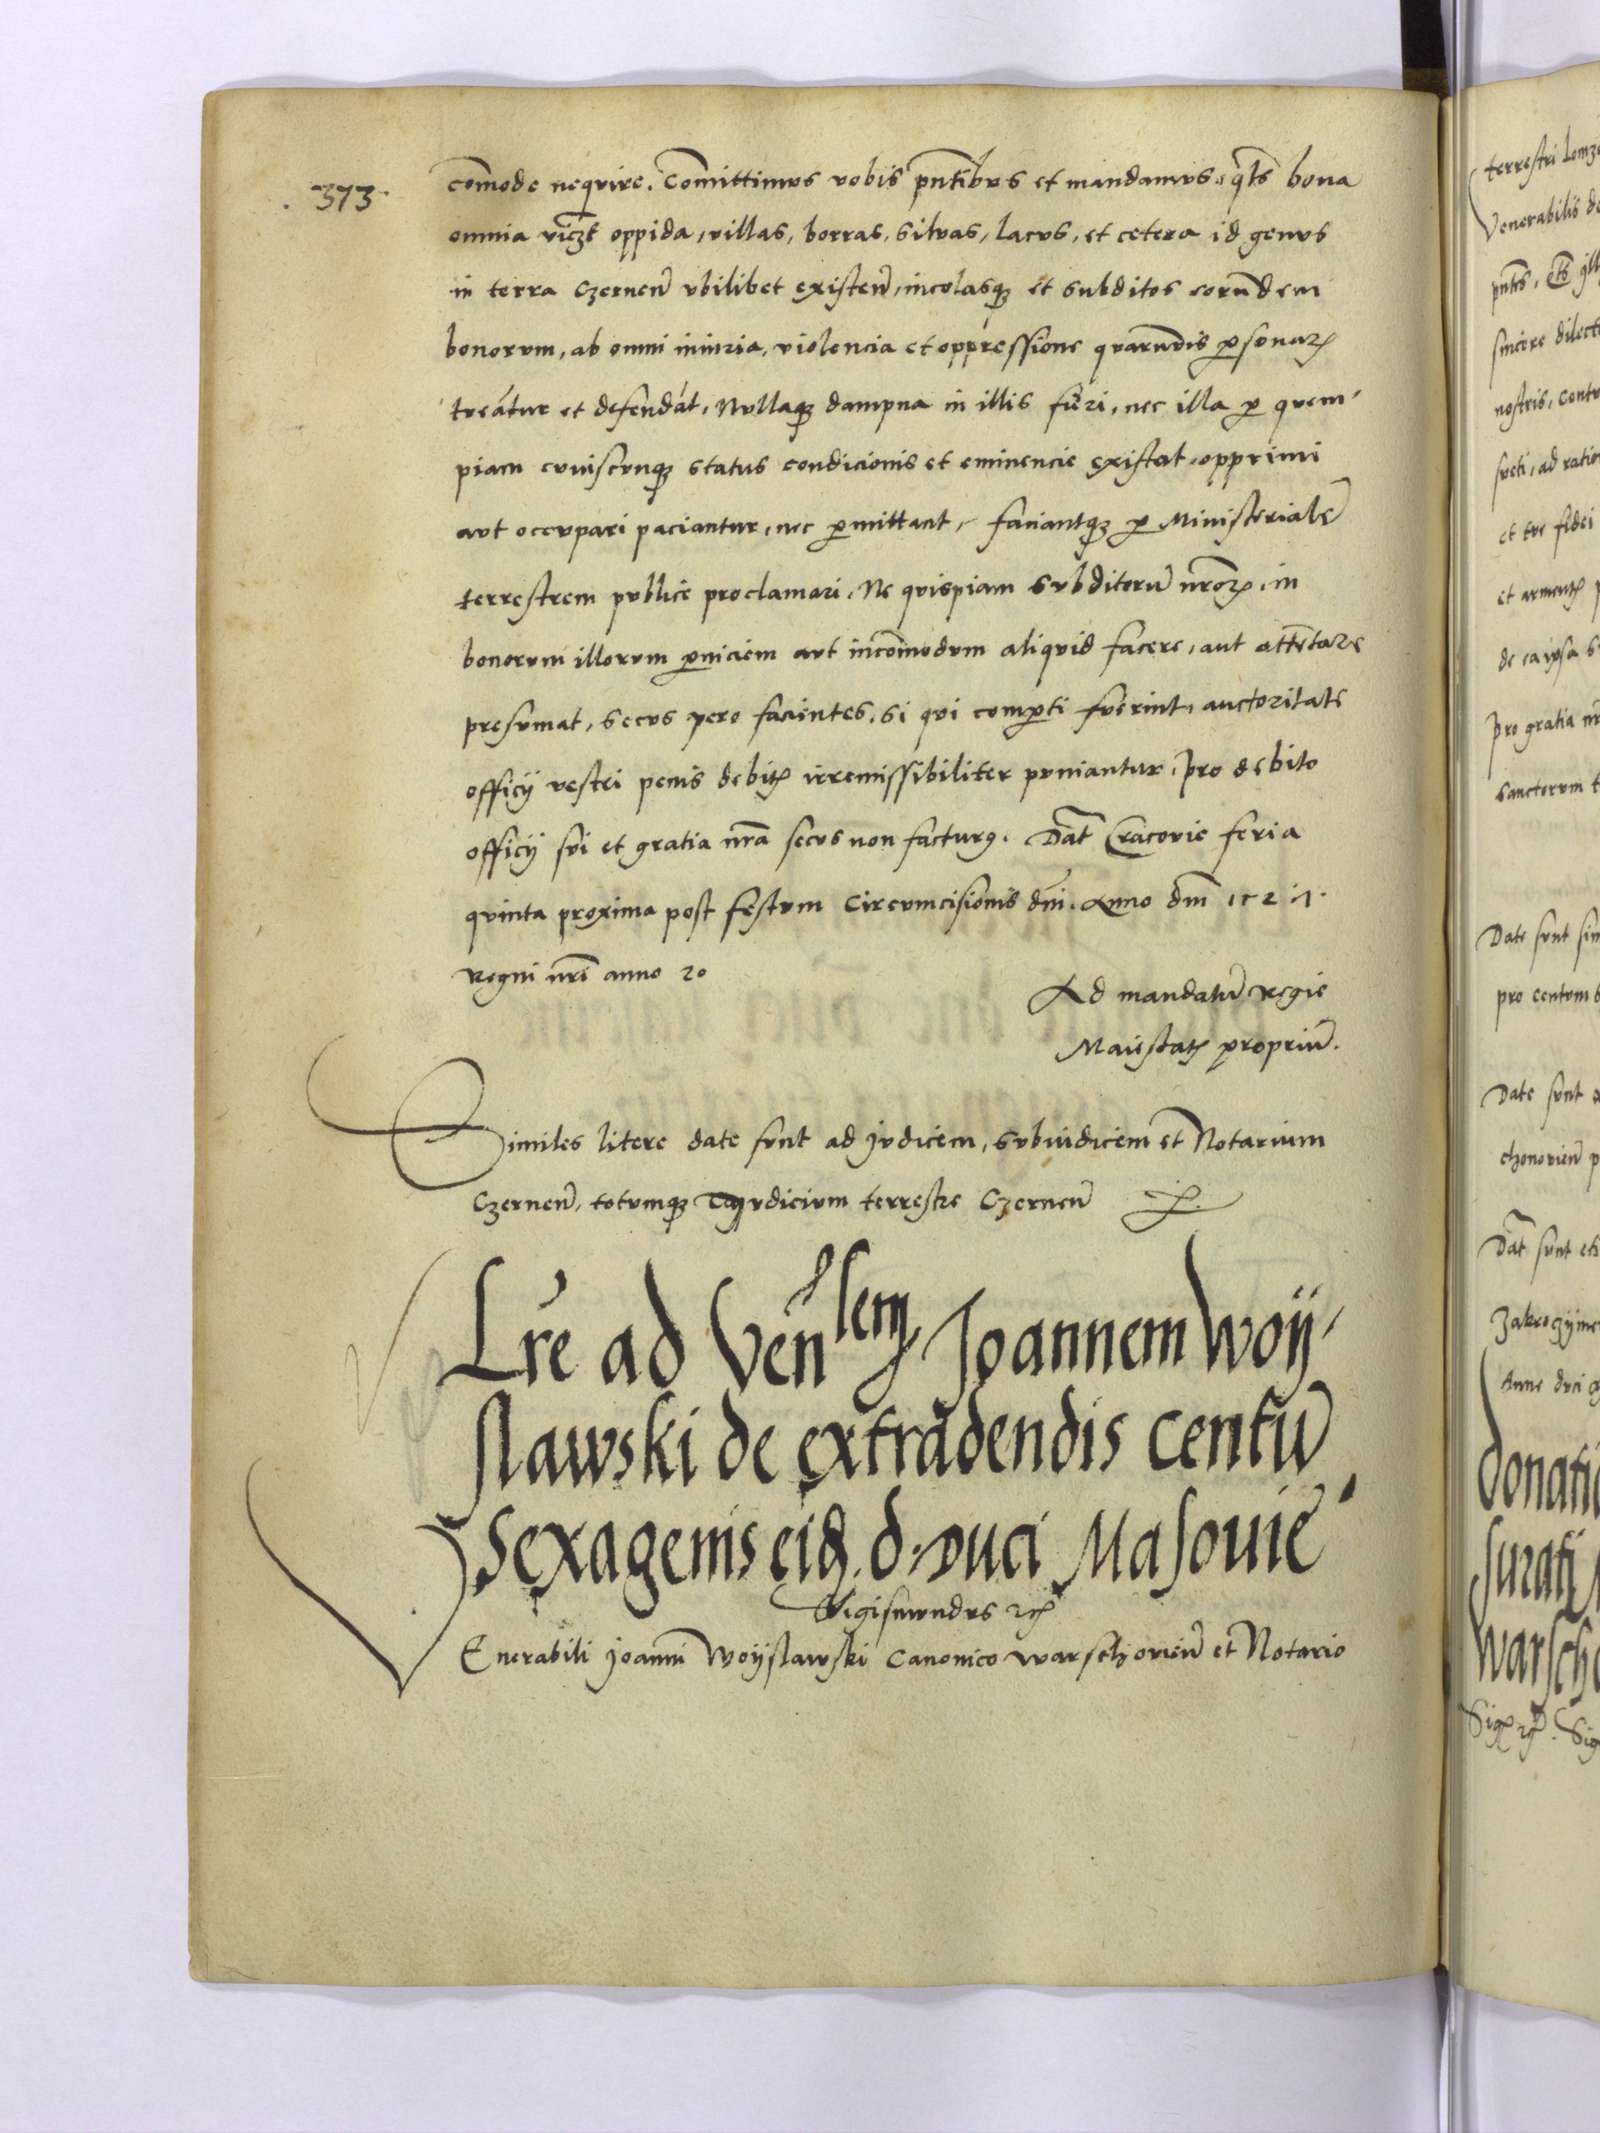 .373.
com̄ode nequire. Com̄ittimus vobis pn̄tibus et mandamus. q̄ts bona
omnia vicz̄t oppida, villas, borras, siluas, lacus, et cetera id genus
in terra Czernen̄ vbilibet existen̄, incolasqz et subditos eorundem
bonorum, ab omni iniuria, violencia et oppressione quarumuis psonarz
tueātur et defendāt, Nullaqz dampna in illis fieri, nec illa p quem
piam cuiuscunqz status condicionis et eminencie existat, opprimi
aut occupari paciantur, nec pmittant, faciantqz p Ministerialē
terrestrem publice proclamari, Ne quispiam subditorū nr̄orz, in
bonorum illorum pniciem aut incōmodum aliquid facere, aut attētare
presumat, secus vero facientes, si qui compti fuerint, auctoritate
officij vestri penis debitz irremissibiliter puniantur, Pro debito
officij sui et gratia nr̄a secus non factur9. Dat̄ Cracovie feria
quinta proxima post festum Circumcisionis dn̄i. Anno dn̄i 1527.
Regni nr̄i anno 20
Ad mandatū regie
Maiestatz propriū.
Similes litere date sunt ad Judicem, subiudicem et Notarium
Czernen̄, totumqz Judicium terrestre Czernen̄
Lr̄e ad Ven̄lem Joannem Woij
slawski de extradendis centū
Sexagenis eid. d. duci Masouie
Sigismundus rex
Enerabili Joanni Woijslawski Canonico warschovien̄ et Notario
terrestri
Venerabilis
pn̄tes,
nostris,
sueti, ad
et tre fidei
de ea ipsa
Pro gratia
sanctorum
Date sunt
pro centum
Date sunt
Dat̄ sunt
Anne duci